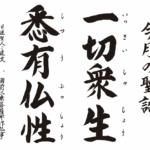 今月の聖語
いっさいしゅじょう
一切衆生
しつうぶっしょう
悉有仏性
日蓮聖人